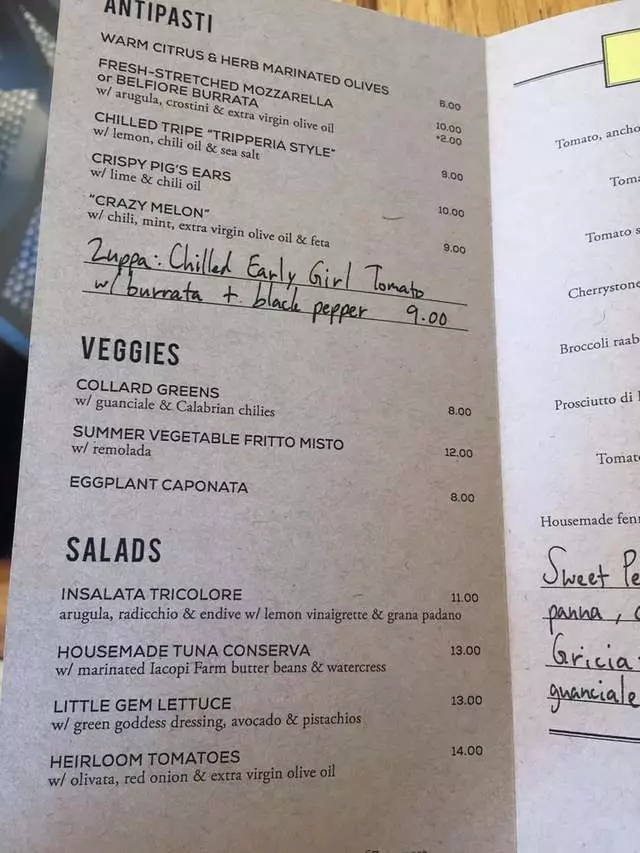 ANTIPASTI
WARM CITRUS & HERB MARINATED OLIVES 6.00
FRESH-STRETCHED MOZZARELLA
or BELFIORE BURRATA 10.00
w/ arugula, crostini & extra virgin olive oil +2.00
CHILLED TRIPE "TRIPPERIA STYLE"
w/ lemon, chili oil & sea salt 9.00
CRISPY PIG'S EARS
w/ lime & chili oil 10.00
"CRAZY MELON"
w/ chili, mint, extra virgin olive oil & feta 9.00
Zuppa: Chilled Early Girl Tomato
w/ burrata + black pepper 9.00
VEGGIES
COLLARD GREENS
w/ guanciale & Calabrian chilies 8.00
SUMMER VEGETABLE FRITTO MISTO
w/ remolada 12.00
EGGPLANT CAPONATA 8.00
SALADS
INSALATA TRICOLORE 11.00
arugula, radicchio & endive w/ lemon vinaigrette & grana padano
HOUSEMADE TUNA CONSERVA 13.00
w/ marinated Iacopi Farm butter beans & watercress
LITTLE GEM LETTUCE 13.00
w/ green goddess dressing, avocado & pistachios
HEIRLOOM TOMATOES 14.00
w/ olivata, red onion & extra virgin olive oil
Tomato, ancho
Toma
Tomato s
Cherrystone
Broccoli raab
Prosciutto di
Tomato
Housemade fenn
Sweet Pe
panna,
Gricia:
guanciale